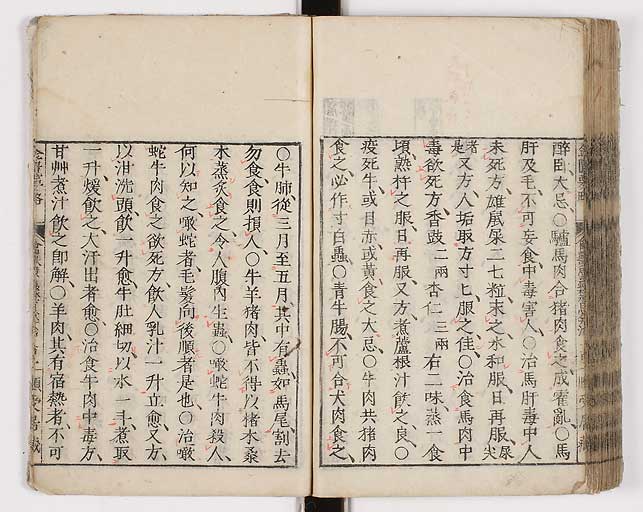 醉臥大忌○驢馬肉合猪肉食之成霍亂○馬
肝及毛不可妄食中毒害人○治馬肝毒中人
未死方雄鼠屎二七粒末之水和服日再服屎尖
者是又方人垢取方寸匕服之佳○治食馬肉中
毒欲死方香豉二兩杏仁三兩右二味蒸一食
頃熟杵之服日再服又方煮蘆根汁飲之良○
疫死牛或目赤或黃食之大忌○牛肉共猪肉
食之必作寸白蟲○青牛腸不可合犬肉食之
○牛肺從三月至五月其中有蟲如馬尾割去
勿食食則損人○牛羊猪肉皆不得以楮木桑
木蒸炙食之令人腹內生蟲○噉蛇牛肉殺人
何以知之噉蛇者毛髮向後順者是也○治噉
蛇牛肉食之欲死方飲人乳汁一升立愈又方
以泔洗頭飲一升愈牛肚細切以水一斗煮取
一升煖飲之大汗出者愈○治食牛肉中毒方
甘艸煮汁飲之即解○羊肉其有宿熱者不可